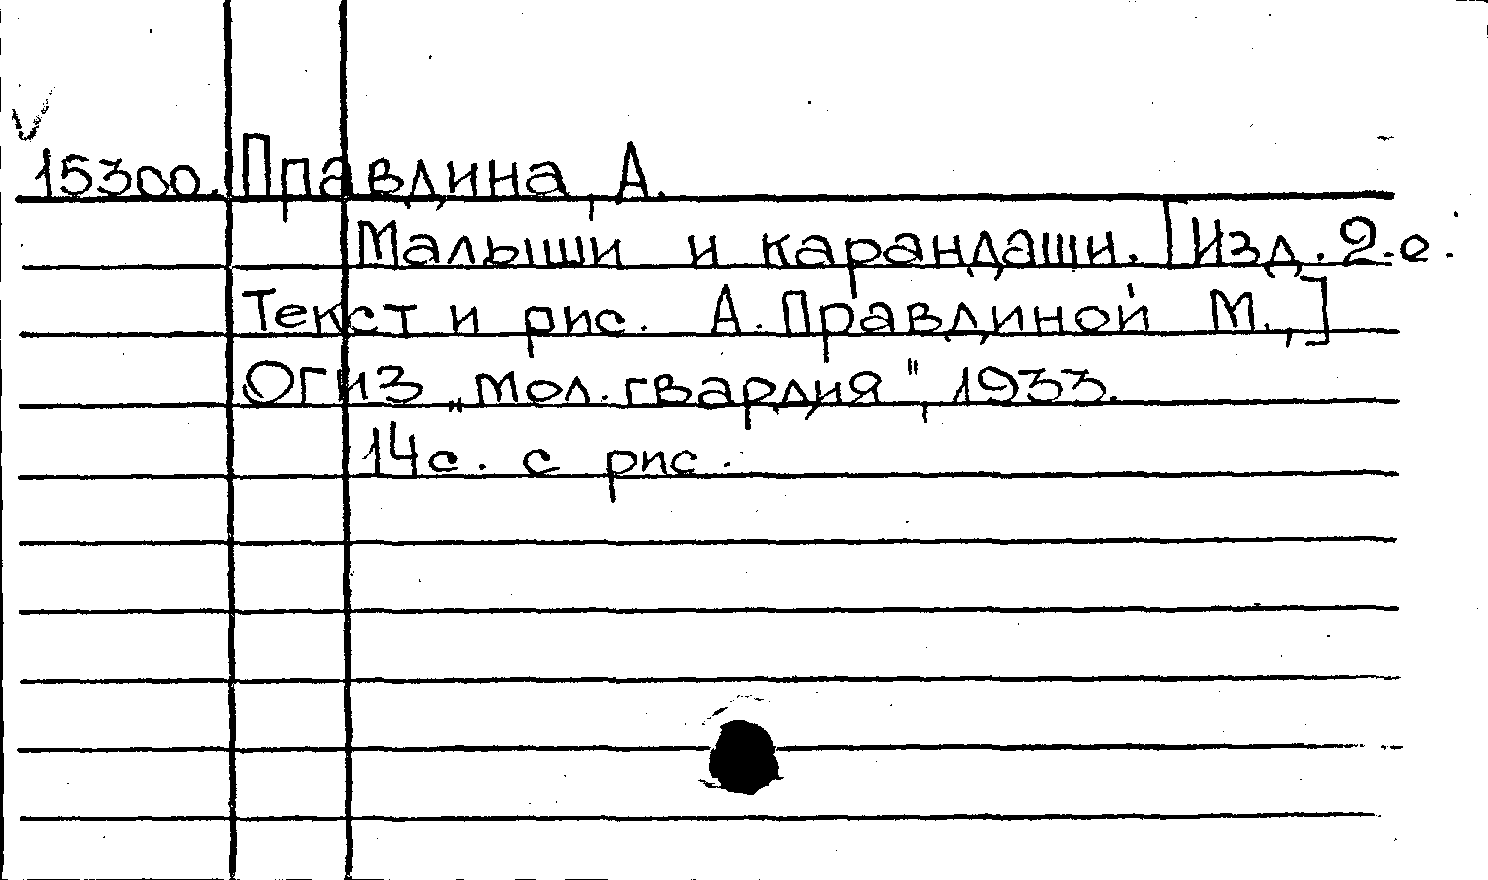 15300. Правдина, А.
Малыши и карандаши. [Изд. 2-е.
Текст и рис. А. Правдиной М.,]
Огиз „мол. гвардия", 1933.
14 с. с рис.